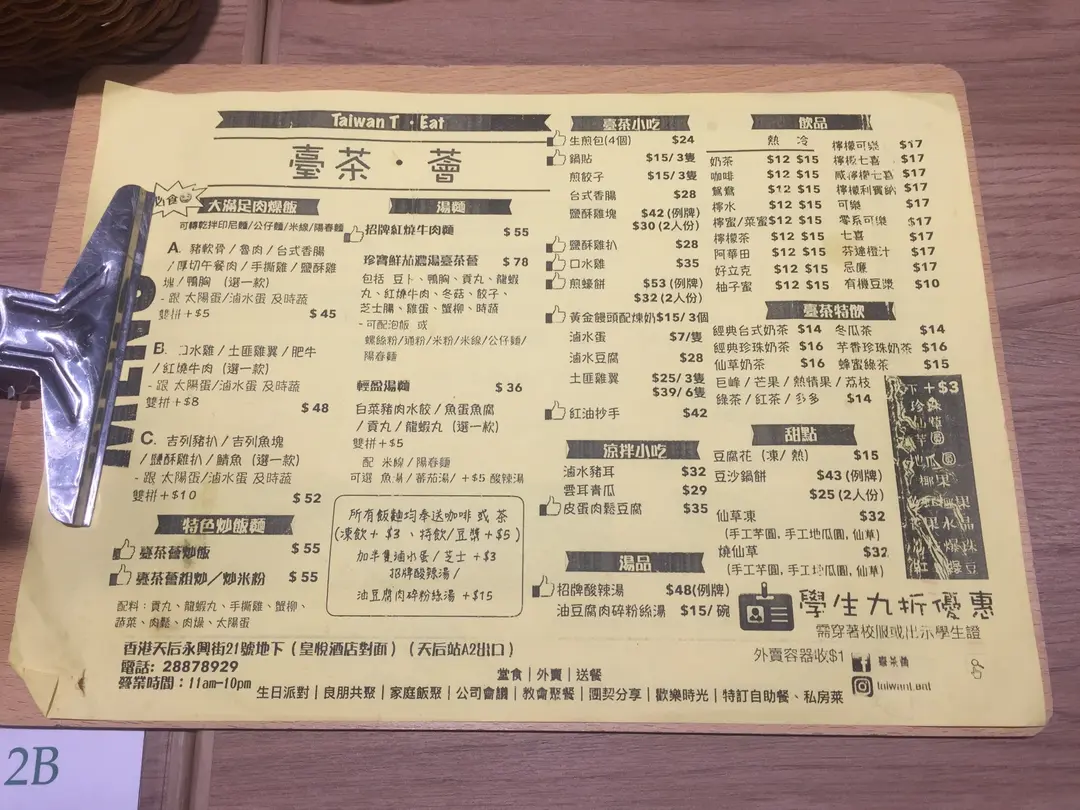 Taiwan T · Eat
臺茶·薈
必食
大滿足肉燥飯
可轉乾拌印尼麵/公仔麵/米線/陽春麵
A. 豬軟骨/魯肉/台式香腸
/厚切午餐肉/手撕雞/鹽酥雞
塊/鴨胸 (選一款)
- 跟 太陽蛋/滷水蛋 及時蔬
雙拼+$5 $45
B. 口水雞/土匪雞翼/肥牛
/紅燒牛肉 (選一款)
- 跟 太陽蛋/滷水蛋 及時蔬
雙拼+$8 $48
C. 吉列豬扒/吉列魚塊
/鹽酥雞扒/鯖魚 (選一款)
- 跟 太陽蛋/滷水蛋 及時蔬
雙拼+$10 $52
特色炒飯麵
臺茶薈炒飯 $55
臺茶薈粗炒/炒米粉 $55
配料:貢丸、龍蝦丸、手撕雞、蟹柳、
蔬菜、肉鬆、肉燥、太陽蛋
湯麵
招牌紅燒牛肉麵 $55
珍寶鮮茄濃湯臺茶薈 $78
包括 豆卜、鴨胸、貢丸、龍蝦
丸、紅燒牛肉、冬菇、餃子、
芝士腸、雞蛋、蟹柳、時蔬
- 可配泡飯 或
螺絲粉/通粉/米粉/米線/公仔麵/
陽春麵
輕盈湯麵 $36
白菜豬肉水餃/魚蛋魚腐
/貢丸/龍蝦丸 (選一款)
雙拼+$5
配 米線/陽春麵
可選 魚湯/蕃茄湯/+$5 酸辣湯
所有飯麵均奉送咖啡 或 茶
(凍飲+ $3、特飲/豆漿+$5)
加半隻滷水蛋/芝士 +$3
招牌酸辣湯/
油豆腐肉碎粉絲湯 +$15
臺茶小吃
生煎包(4個) $24
鍋貼 $15/3隻
煎餃子 $15/3隻
台式香腸 $28
鹽酥雞塊 $42(例牌)
$30(2人份)
鹽酥雞扒 $28
口水雞 $35
煎蠔餅 $53(例牌)
$32(2人份)
黃金饅頭配煉奶$15/3個
滷水蛋 $7/隻
滷水豆腐 $28
土匪雞翼 $25/3隻
$39/6隻
紅油抄手 $42
涼拌小吃
滷水豬耳 $32
雲耳青瓜 $29
皮蛋肉鬆豆腐 $35
湯品
招牌酸辣湯 $48(例牌)
油豆腐肉碎粉絲湯 $15/碗
飲品
熱 冷
奶茶 $12 $15
咖啡 $12 $15
鴛鴦 $12 $15
檸水 $12 $15
檸蜜/菜蜜$12 $15
檸檬茶 $12 $15
阿華田 $12 $15
好立克 $12 $15
柚子蜜 $12 $15
檸檬可樂 $17
檸檬七喜 $17
咸檸檬七喜 $17
檸檬利賓納 $17
可樂 $17
零系可樂 $17
七喜 $17
芬達橙汁 $17
忌廉 $17
有機豆漿 $10
臺茶特飲
經典台式奶茶 $14 冬瓜茶 $14
經典珍珠奶茶 $16 芋香珍珠奶茶 $16
仙草奶茶 $16 蜂蜜綠茶 $15
巨峰/芒果/熱情果/荔枝
綠茶/紅茶/多多 $14
甜點
豆腐花(凍/熱) $15
豆沙鍋餅 $43(例牌)
$25(2人份)
仙草凍 $32
(手工芋圓,手工地瓜圓,仙草)
燒仙草 $32
(手工芋圓,手工地瓜圓,仙草)
下 +$3
珍珠
仙草
芋圓
地瓜圓
椰果
學生九折優惠
需穿著校服或出示學生證
外賣容器收$1
臺茶薈
taiwant.eat
香港天后永興街21號地下(皇悅酒店對面)(天后站A2出口)
電話: 28878929
營業時間:11am-10pm
堂食|外賣|送餐
生日派對|良朋共聚|家庭飯聚|公司會議|教會聚餐|團契分享|歡樂時光|特訂自助餐、私房菜
2B